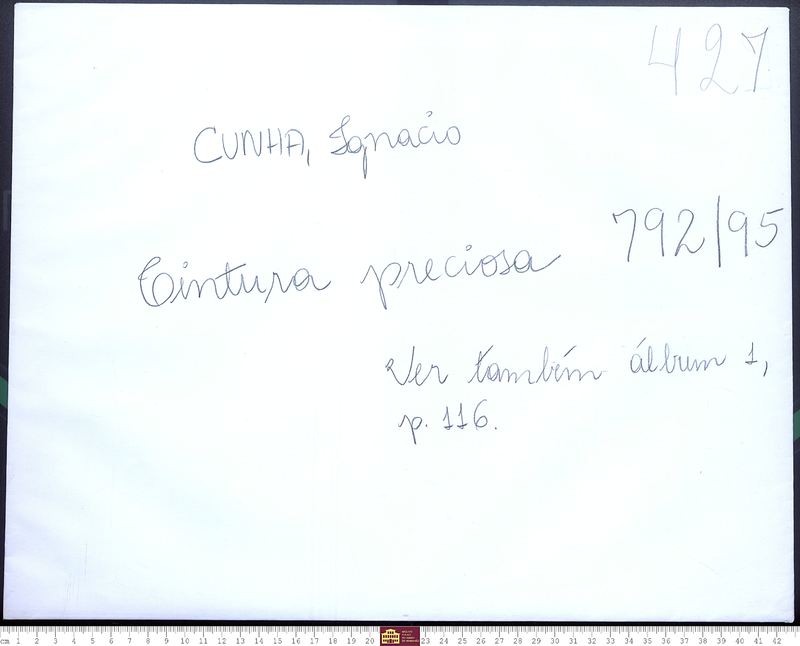 427
CUNHA, Ignacio
792/95
Tintura preciosa
Ver também álbum 1,
p. 116.
cm 1 2 3 4 5 6 7 8 9 10 11 12 13 14 15 16 17 18 19 20 23 24 25 26 27 28 29 30 31 32 33 34 35 36 37 38 39 40 41 42